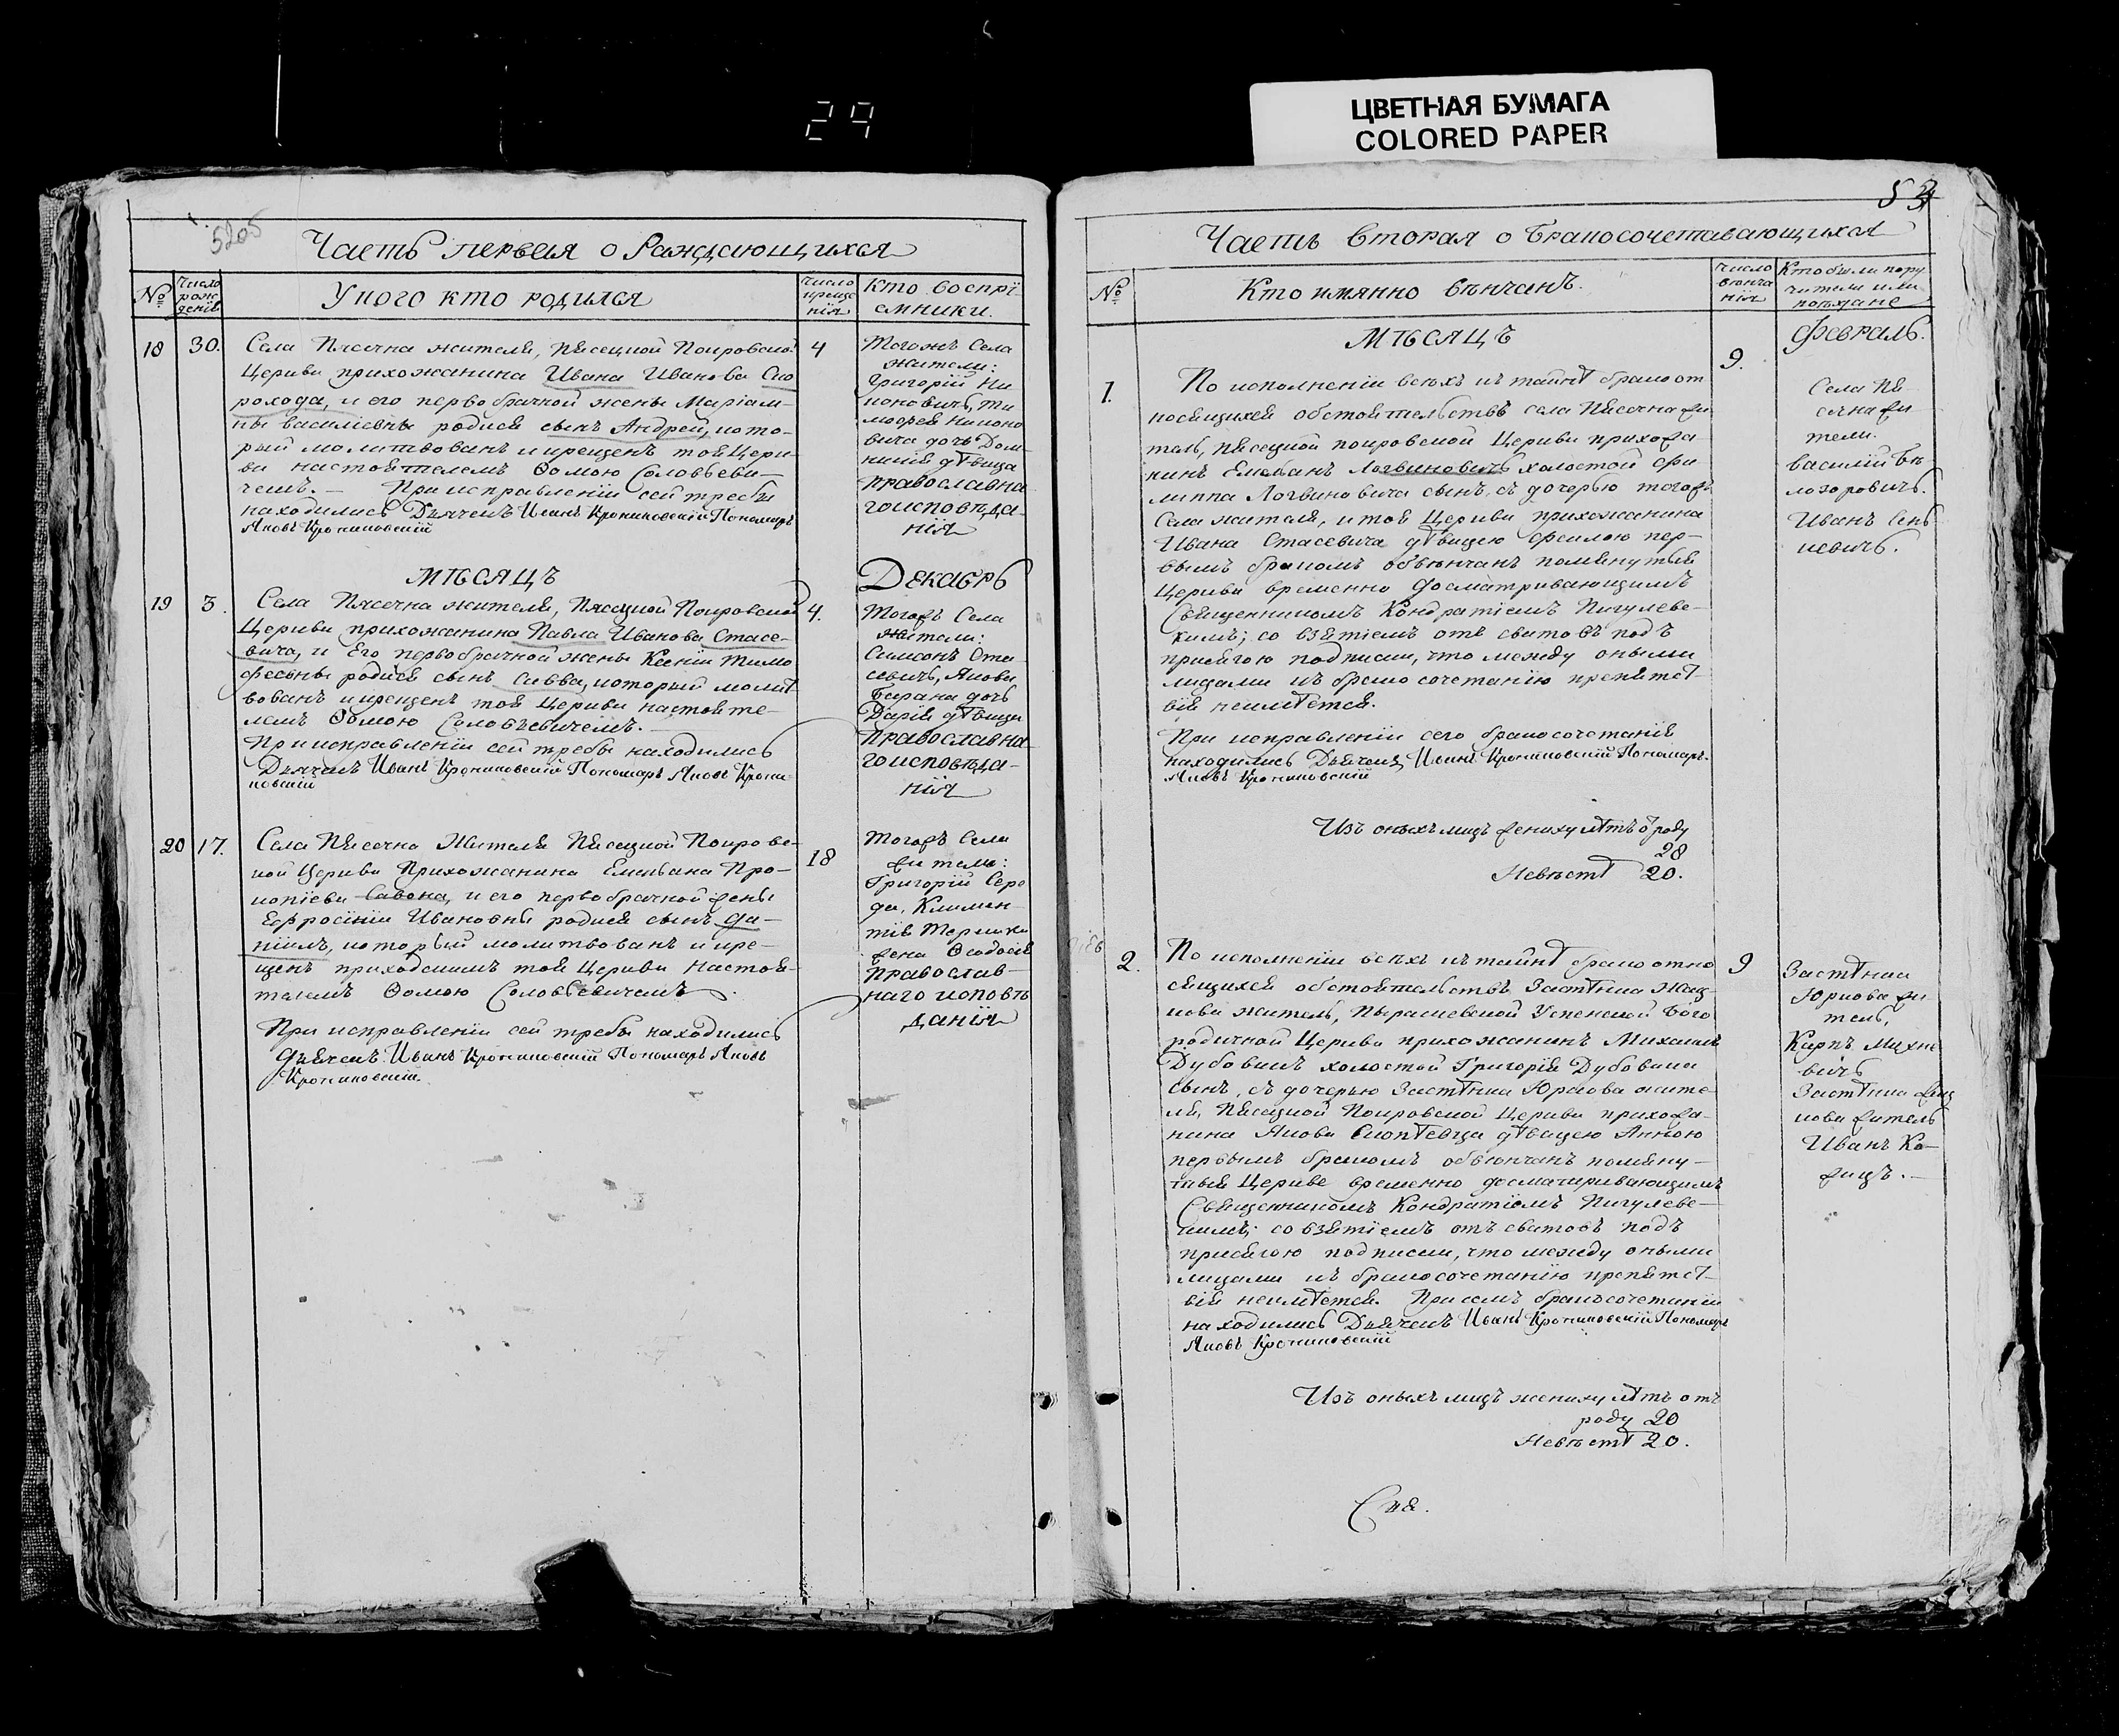 29
ЦВЕТНАЯ БУМАГА
COLORED PAPER
52об
Часть первая о Раждающихся
№
Число рождения
У кого кто родился
Число крещения
Кто восприемники.
18
30.
Села Пясечна жителя, Пясецкой Покровской
Церкви прихожанина Ивана Иванова Ско
рохода, и его первобрачной жены Мариам-
ны Василиевны родися сынъ Андрей, кото-
рый молитвованъ и крещенъ той Церк-
ви настоятелемъ Ѳомою Соловьеви-
чемъ. — При исправленіи сей требы
находились Дьячекъ Иванъ Пономарь
Яковъ
4
Тогожъ Села
жители:
Григорій Ни
коновичъ, Ти
мофеяНиконо
вича дочь Дом
никія дѣвица
православна
го исповѣда-
нія
МѢСЯЦЪ
Декабрь
19
3.
Села Пясечна жителя, Пясецкой Покровской
Церкви прихожанина Павла Иванова Стасе-
вича, и Его первобрачной жены Ксеніи Тимо
феевны родися сынъ Савва, который молит
вованъ и крещенъ той Церкви настояте-
лемъ Ѳомою Соловьевичемъ.
При исправленіи сей требы находились
Дьячекъ Иванъ Пономарь Яковъ
4.
Тогожъ Села
жители:
Симонъ Ста
севичъ, Якова
Барана дочь
Дарія дѣвица
Православна
го исповѣда-
нія
20
17.
Села Пясечна Жителя Пясецкой Покровс-
кой Церкви Прихожанина Емельяна Про-
копіева Савона, и его первобрачной жены
Ефросиніи Ивановны родися сынъ Да-
ніилъ, который молитвованъ и кре-
щенъ приходскимъ той Церкви Настоя-
телемъ Ѳомою Соловьевичемъ.
При исправленіи сей требы находились
Дьячекъ Иванъ Пономарь Яковъ
18
Тогожъ Села
жители:
Григорій Серо
да, Климен-
тія
жена Ѳеодосія
Православ-
наго исповѣ
данія
53
Часть Вторая о Бракосочетавающихся
№
Кто имянно вѣнчанъ.
Число вѣнчанія
Кто были поручители или поѣзжане
МѢСЯЦЪ
Февраль.
1.
По исполненіи всѣхъ къ тайнѣ брака от
носящихся обстоятельствъ села Пясечна жи
тель, Пясецкой покровской Церкви прихожа
нинъ Емельянъ Логвиновичъ холостой Фи
липпа Логвиновича сынъ, съ дочерью тогожъ
Села жителя, и той Церкви прихожанина
Ивана Стасевича дѣвицею Феклою пер-
вымъ бракомъ обвѣнчанъ помянутыя
Церкви временно досматривающимъ
Священникомъ Кондратіемъ Пигулевс-
кимъ; со взятіемъ отъ сватовъ подъ
присягою подписки, что между оными
лицами къ бракосочетанію препятст-
вія неимѣется.
При исправленіи сего бракосочетанія
находились Дьячекъ Иванъ Пономарь
Яковъ
Изъ оныхъ лицъ жениху лѣтъ от роду
28
Невѣстѣ 20.
9.
Села Пя-
сечна жи
тели.
Василій Бѣ-
лозоровичъ.
Иванъ Сень
кевичъ.
2.
По исполненіи всѣхъ къ тайнѣ брака отно
сящихся обстоятельствъ Застѣнка
житель, Успенской Бого
родичной Церкви прихожанинъ Михаилъ
Дубовикъ холостой Григорія Дубовика
сынъ, съ дочерью Застѣнка Юркова жите-
ля, Пясецкой Покровской Церкви прихожа-
нина Якова дѣвицею Анною
первымъ бракомъ обвѣнчанъ помяну-
тыя Церкве временно досматривающимъ
Священникомъ Кондратіемъ Пигулевс-
кимъ; со взятіемъ отъ сватовъ подъ
присягою подписки, что между оными
лицами къ бракосочетанію препятст-
вій неимѣется. При семъ бракосочетаніи
находились Дьячекъ Иванъ Пономарь
Яковъ
Изъ оныхъ лицъ жениху лѣтъ отъ
роду 20
Невѣстѣ 20.
9
Застѣнка
Юркова жи-
тель,
Карпъ Михне
вичъ
Застѣнка
житель
Иванъ Ко-